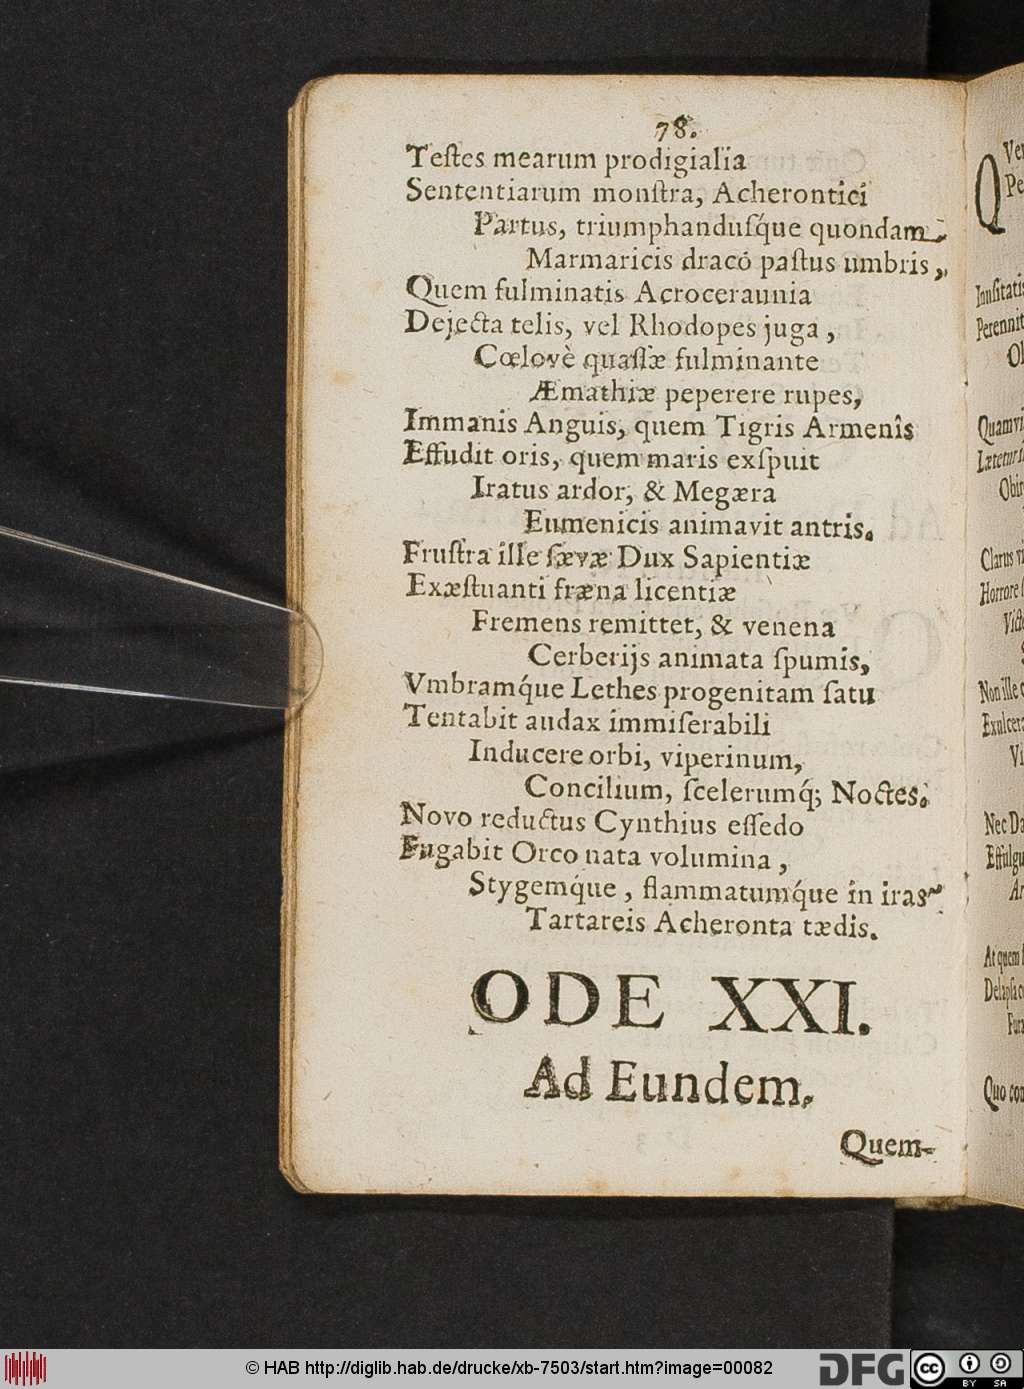 78.
Teſtes mearum prodigialia
Sententiarum monſtra, Acherontici
Partus, triumphanduſq́ue quondam
Marmaricis dracó paſtus umbris,
Quem fulminatis Acroceraunia
Dejecta telis, vel Rhodopes juga,
Cœlovè quaſſæ fulminante
Æmathiæ peperere rupes,
Immanis Anguis, quem Tigris Armenîs
Effudit oris, quem maris exſpuit
Iratus ardor, & Megæra
Eumenicis animavit antris.
Fruſtra ille ſævæ Dux Sapientiæ
Exæſtuanti fræna licentiæ
Fremens remittet, & venena
Cerberijs animata ſpumis,
Vmbramq́ue Lethes progenitam ſatu
Tentabit audax immiſerabili
Inducere orbi, viperinum,
Concilium, ſcelerumq́; Noctes.
Novo reductus Cynthius eſſedo
Fugabit Orco nata volumina,
Stygemq́ue, flammatumq́ue in iras
Tartareis Acheronta tædis.
ODE XXI.
Ad Eundem.
Quem-
Q
Inuſitatis
Perennit
Ol
Quamvi
Obir
Clarus vi
Horrore
Non ille
Exulcera
Vi
Nec Da
Effulgu
At quem
Quo con
© HAB http://diglib.hab.de/drucke/xb-7503/start.htm?image=00082
DFG
cc
BY SA